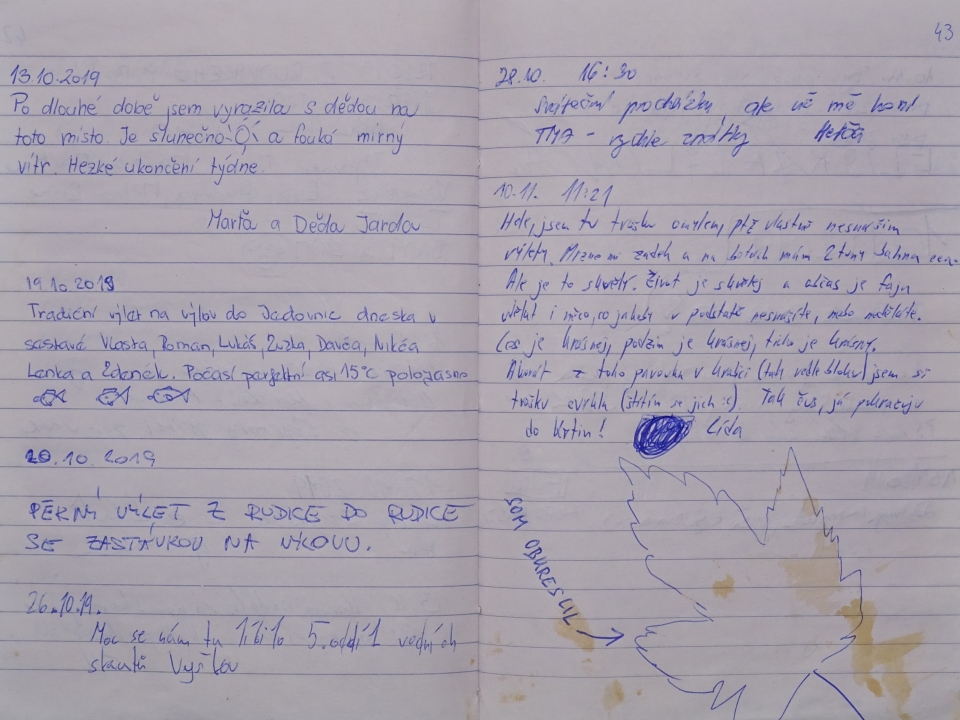 13.10.2019
Po dlouhé době jsem vyrazila s dědou na
toto místo. Je slunečno a fouká mírný
vítr. Hezké ukončení týdne.
Marťa a Děda Jarda
19.10.2019
Tradiční výlet na výlov do Jedovnic dneska v
sestavě Vlasta, Roman, Lukáš, Zuzka, Davča, Nikča
Lenka a Zdeněk. Počasí perfektní asi 15°C polojasno
20.10.2019
PĚKNÝ VÝLET Z RUDICE DO RUDICE
SE ZASTÁVKOU NA VÝLOVU.
26.10.19.
Moc se nám tu líbilo 5.oddíl vodních
skautů Vyškov
43
28.10. 16:30
Sváteční procházka ale už mě honí
TMA - rychle zpátky
10.11. 11:21
Hele, jsem tu trošku omylem, ptž vlastně nesnáším
výlety. Mrzne mi zadek a na botách mám 2 tuny bahna
Ale je to skvělý. Život je skvělej a občas je fajn
udělat i něco, co jakoby v podstatě nesnášíte, nebo neděláte.
Les je krásnej, podzim je krásnej, ticho je krásný.
Akorát z toho pavouka v krabici (tak vedle bloku) jsem si
trošku cvrkla (štítím se jich :c) Tak čus, já pokračuju
do Křtin! Lída
SOM OBKRESLIL